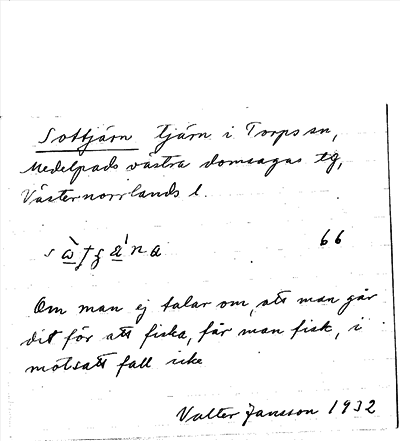 Sottjärn tjärn i Torps sn,
Medelpads västra domsagas tg,
Västernorrlands l.
66
Om man ej talar om, att man går
dit för att fiska, får man fisk, i
motsatt fall icke
Valter Jansson 1932